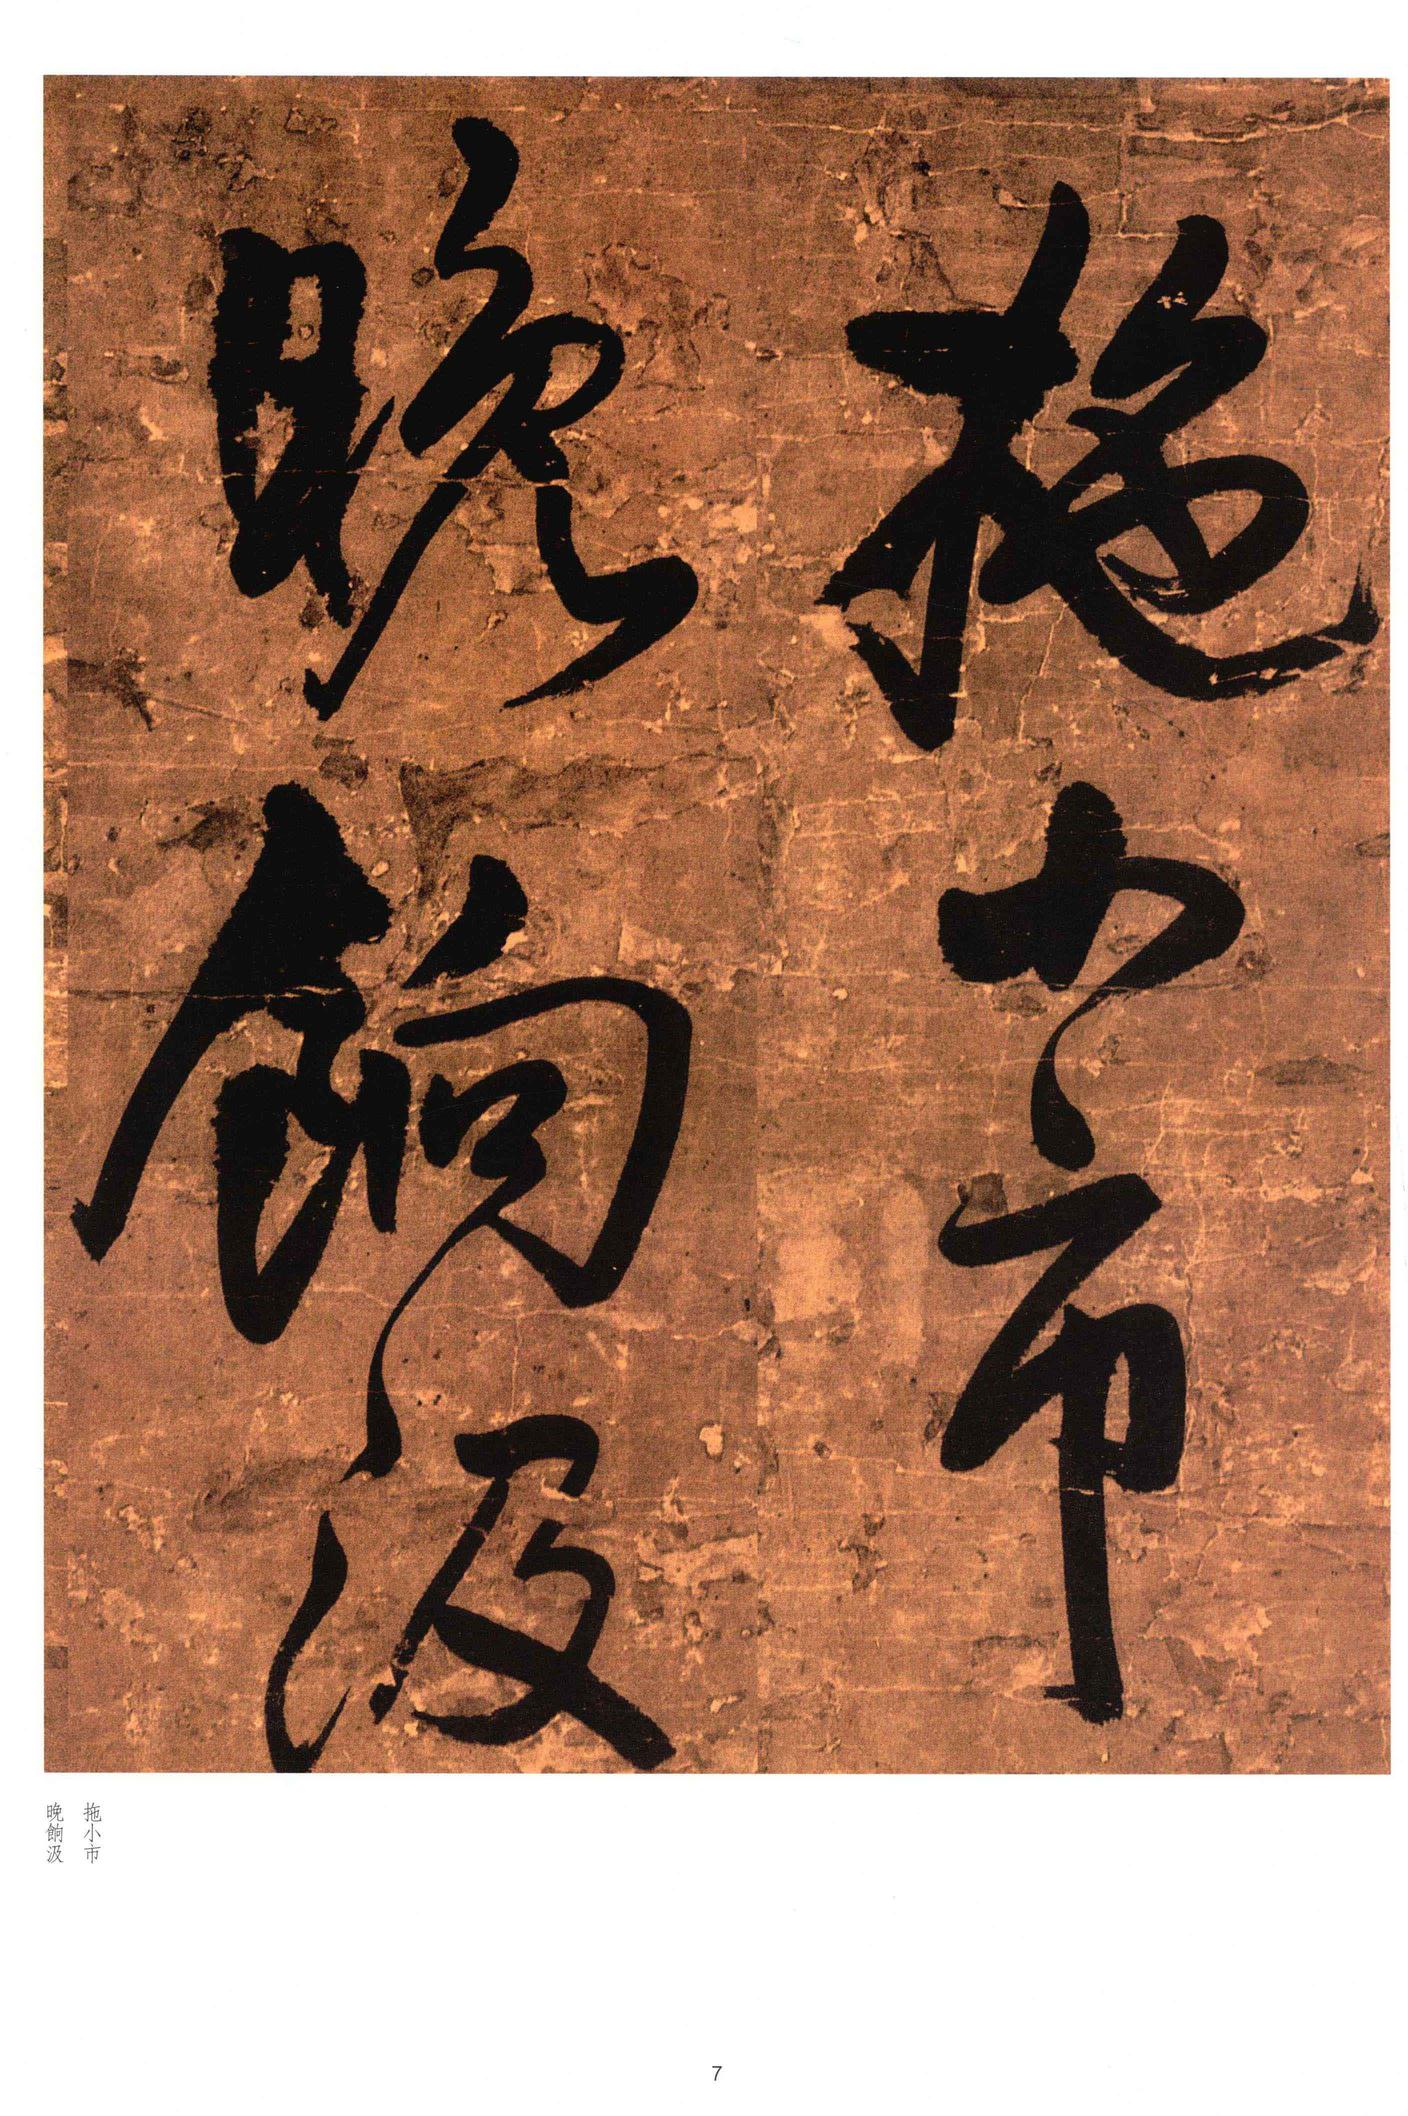 拖小市
晚餉汲
拖小市
晚餉汲
7